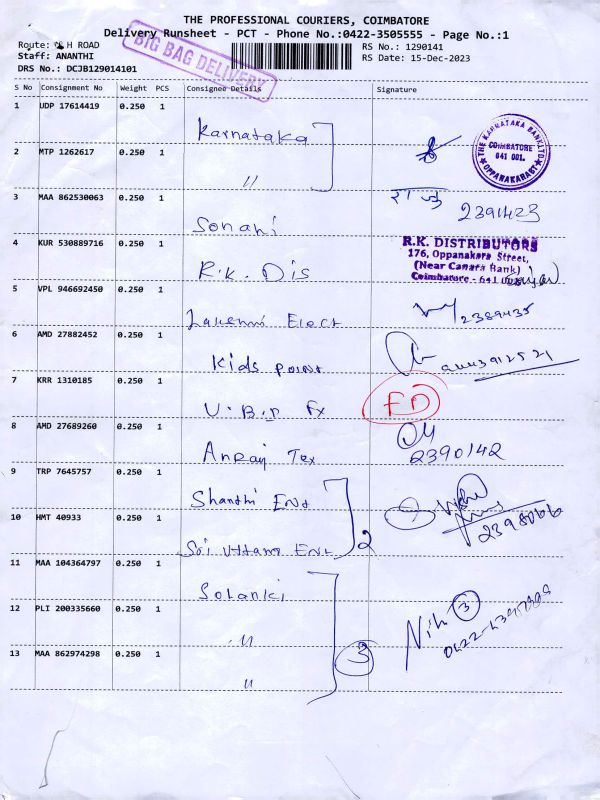 THE PROFESSIONAL COURIERS, COIMBATORE
Delivery Runsheet - PCT - Phone No.:0422-3505555 - Page No.:1
BIG BAG DELIVERY
Route: H ROAD
RS No.: 1290141
Staff: ANANTHI
RS Date: 15-Dec-2023
DRS No.: DCJB129014101
S No Consignment No Weight PCS Consignee Details Signature
1 UDP 17614419 0.250 1 Karnataka
THE KARNATAKA BANK LTD.
COIMBATORE
641 001.
OPPANAKARAST
2 MTP 1262617 0.250 1 "
3 MAA 862530063 0.250 1 Sonani 2391423
4 KUR 530889716 0.250 1 R.K. Dis
R.K. DISTRIBUTORS
176, Oppanakara Street,
(Near Canara Bank)
Coimbatore - 641
5 VPL 946692450 0.250 1 Elect 2389435
6 AMD 27882452 0.250 1 Kids point
7 KRR 1310185 0.250 1 FD
8 AMD 27689260 0.250 1 Tex 2390142
9 TRP 7645757 0.250 1 Shanthi Ent
10 HMT 40933 0.250 1 Sri Uttam Ent 2
11 MAA 104364797 0.250 1 Solanki
12 PLI 200335660 0.250 1 " 3
13 MAA 862974298 0.250 1 " 3